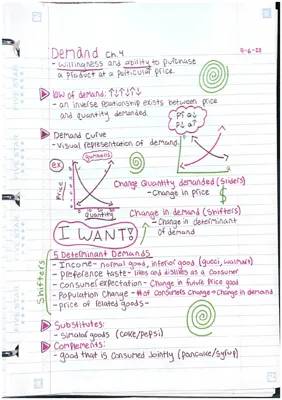 Demand ch.4
9-6-23
- willingness and ability to purchase
a product at a particular price.
law of demand: ↑↓↑↓↑↓
- an inverse relationship exists between price
and quantity demanded.
P↑ Q↓
P↓ Q↑
Demand curve
- Visual representation of demand.
ex
gumballs
Price
quantity
Change Quantity demanded (Sliders)
- Change in price
$
Change in demand (Shifters)
- Change in determinant
of demand
I WANT!
Shifters
5 Determinant Demands
- Income - normal good, inferior good (gucci, walmart)
- Preference taste - likes and dislikes as a consumer
- Consumer expectation - Change in future price good
- Population Change - # of consumers change → Change in demand
- price of related goods -
Substitutes:
- similar goods (coke/pepsi)
Complements:
- good that is consumed jointly (pancake/syrup)